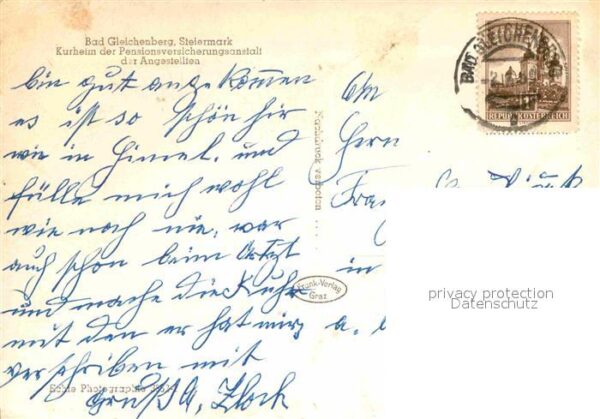 Bad Gleichenberg, Steiermark
Kurheim der Pensionsversicherungsanstalt
der Angestellten
bin gut angekommen
es ist so schön hir
wie in Himel, und
fülle mich wohl
wie noch nie, war
auch schon beim Artzt
und mache die Kuhr
mit den er hat mir
verschriben mit
Gruß A,
Echte Photographie
Nachdruck verboten
Frank-Verlag
Graz
BAD GLEICHENBERG
REPUBLIK ÖSTERREICH
Herrn
in
privacy protection
Datenschutz